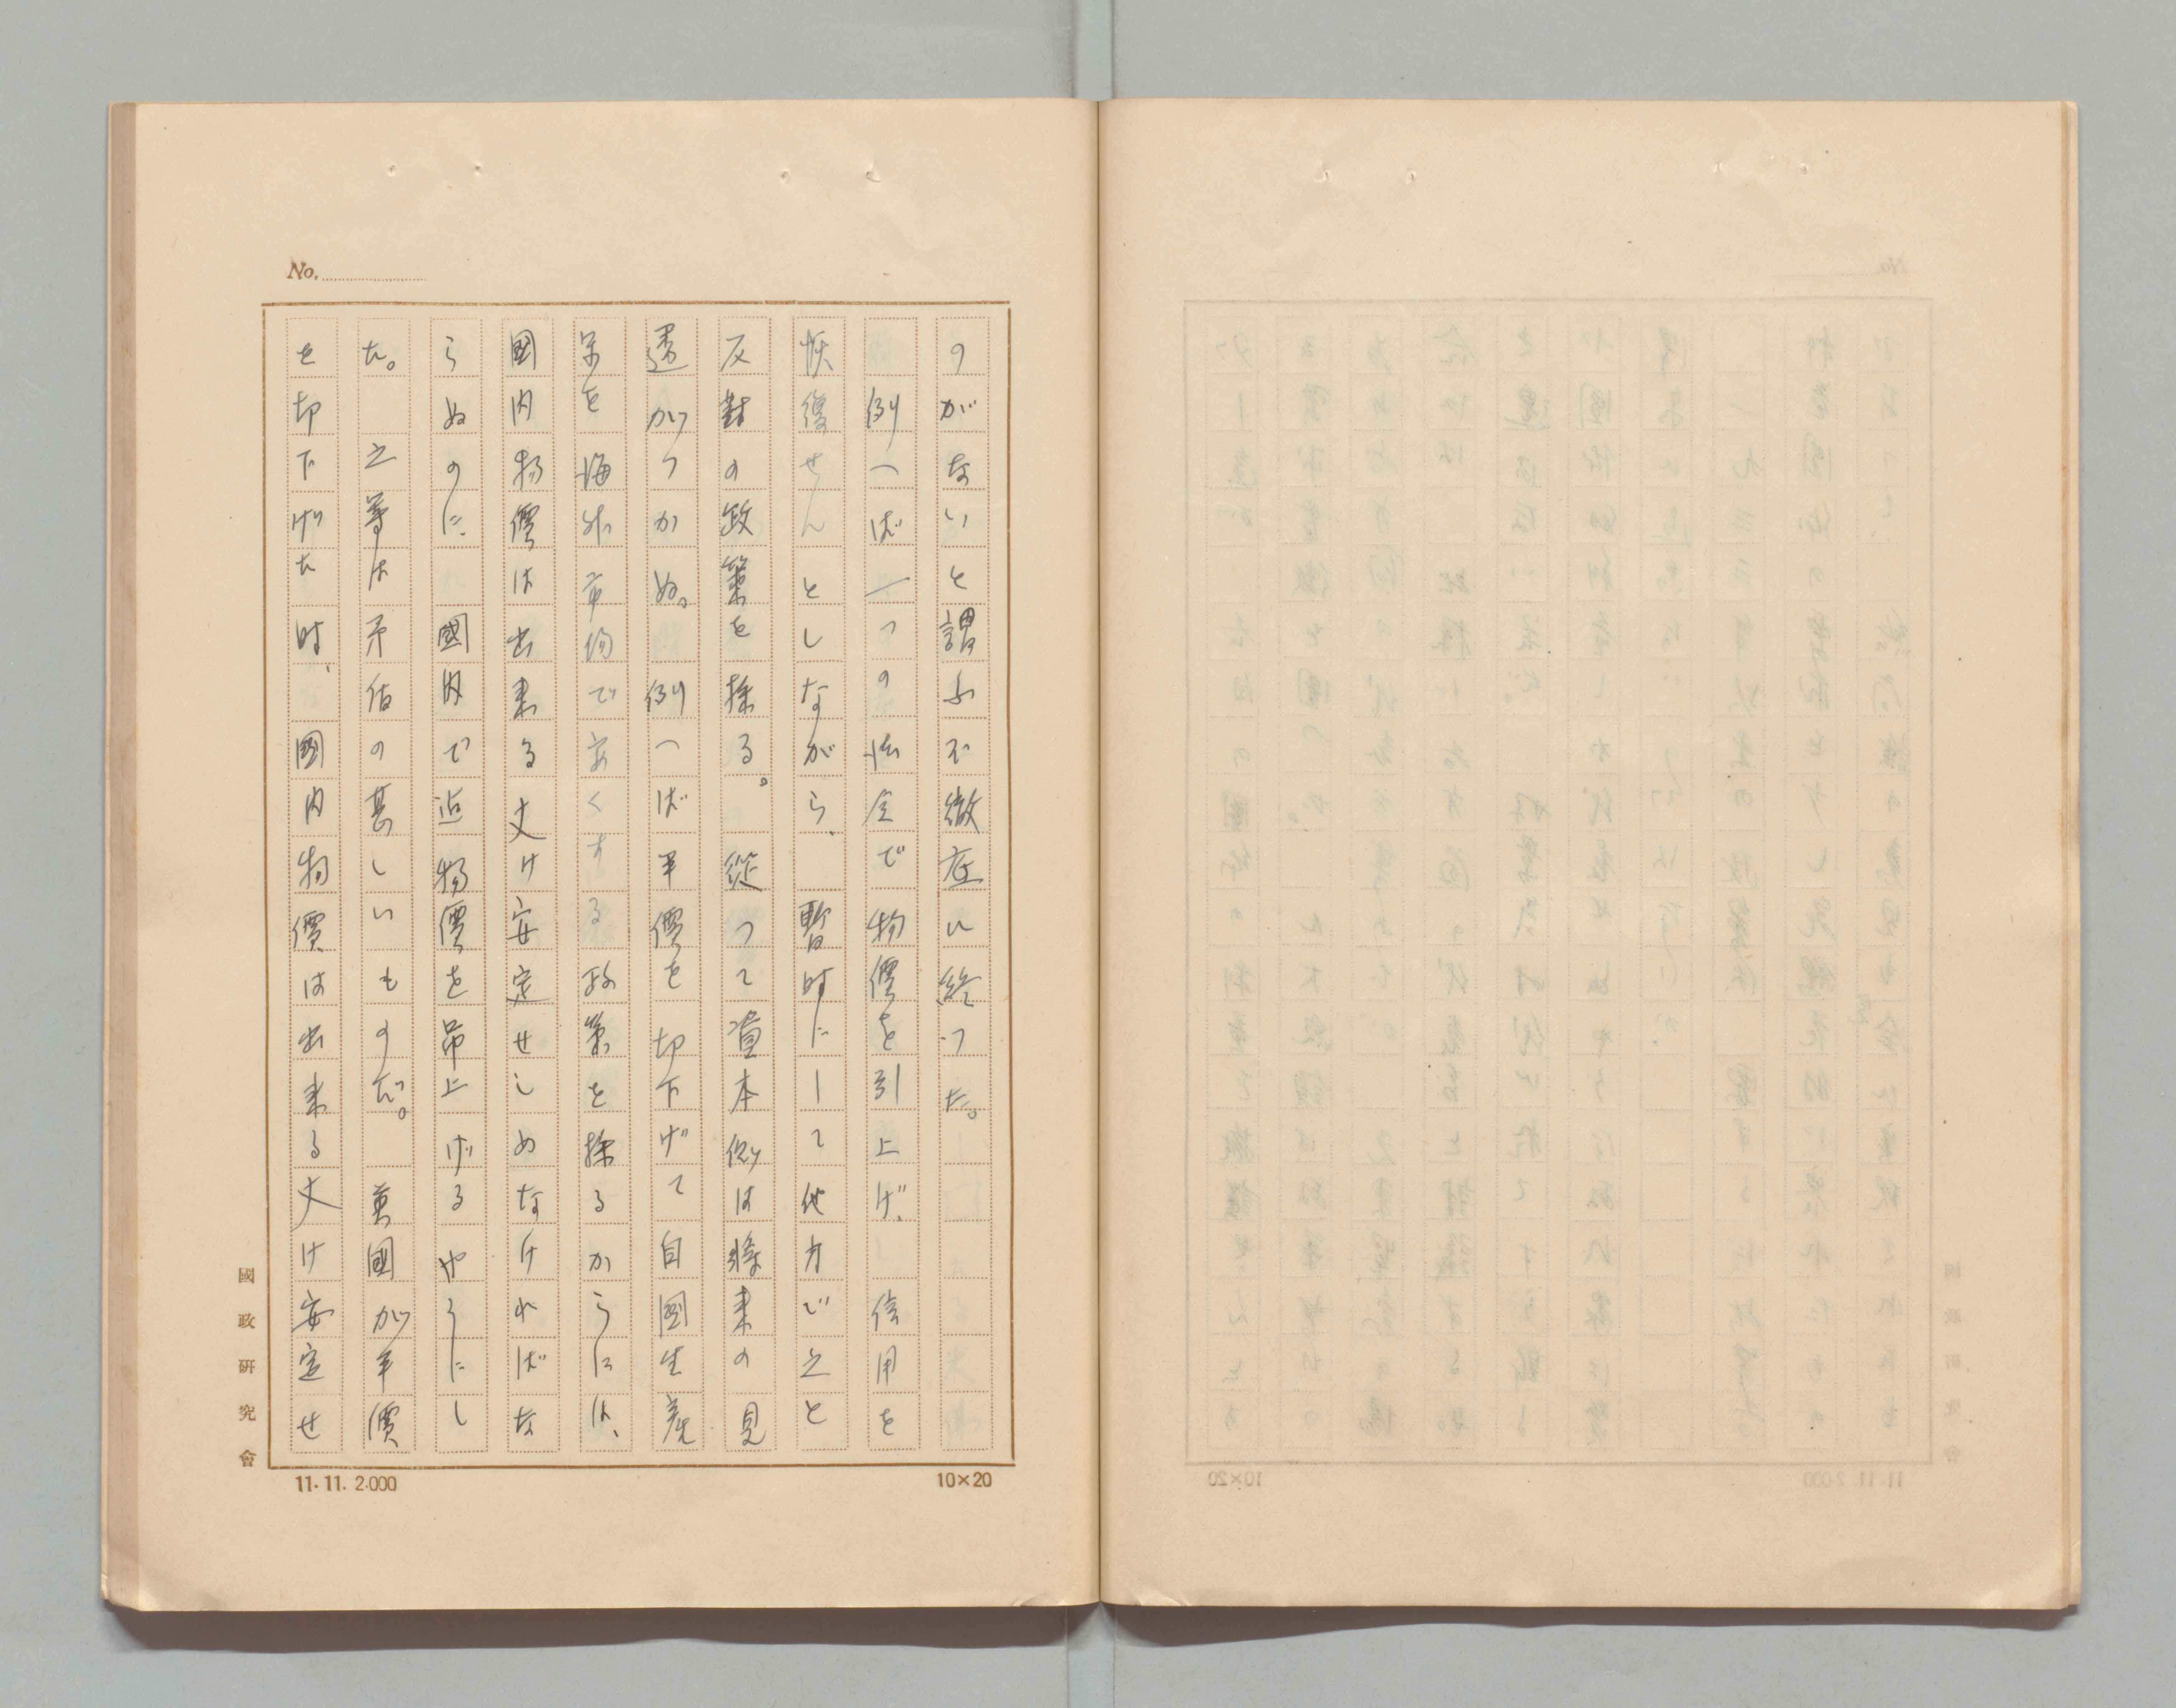 No.
のがないと謂ふ不徹底に終つた。
例へば一つの法令で物價を引上げ、信用を
恢復せんとしながら、暫時にして他方で之と
反對の政策を採る。 從つて資本側は將来の見
透がつかぬ。 例へば平價を切下げて自國生産
品を海外市場で安くする政策を採るからには、
國内物價は出来る丈け安定せしめなければな
らぬのに、國内で迄物價を吊上げるやうにし
た。 之等は矛盾の甚しいものだ。 英國が平價
を切下げた時、 國内物價は出来る丈け安定せ
國政研究會
11.11. 2.000
10×20